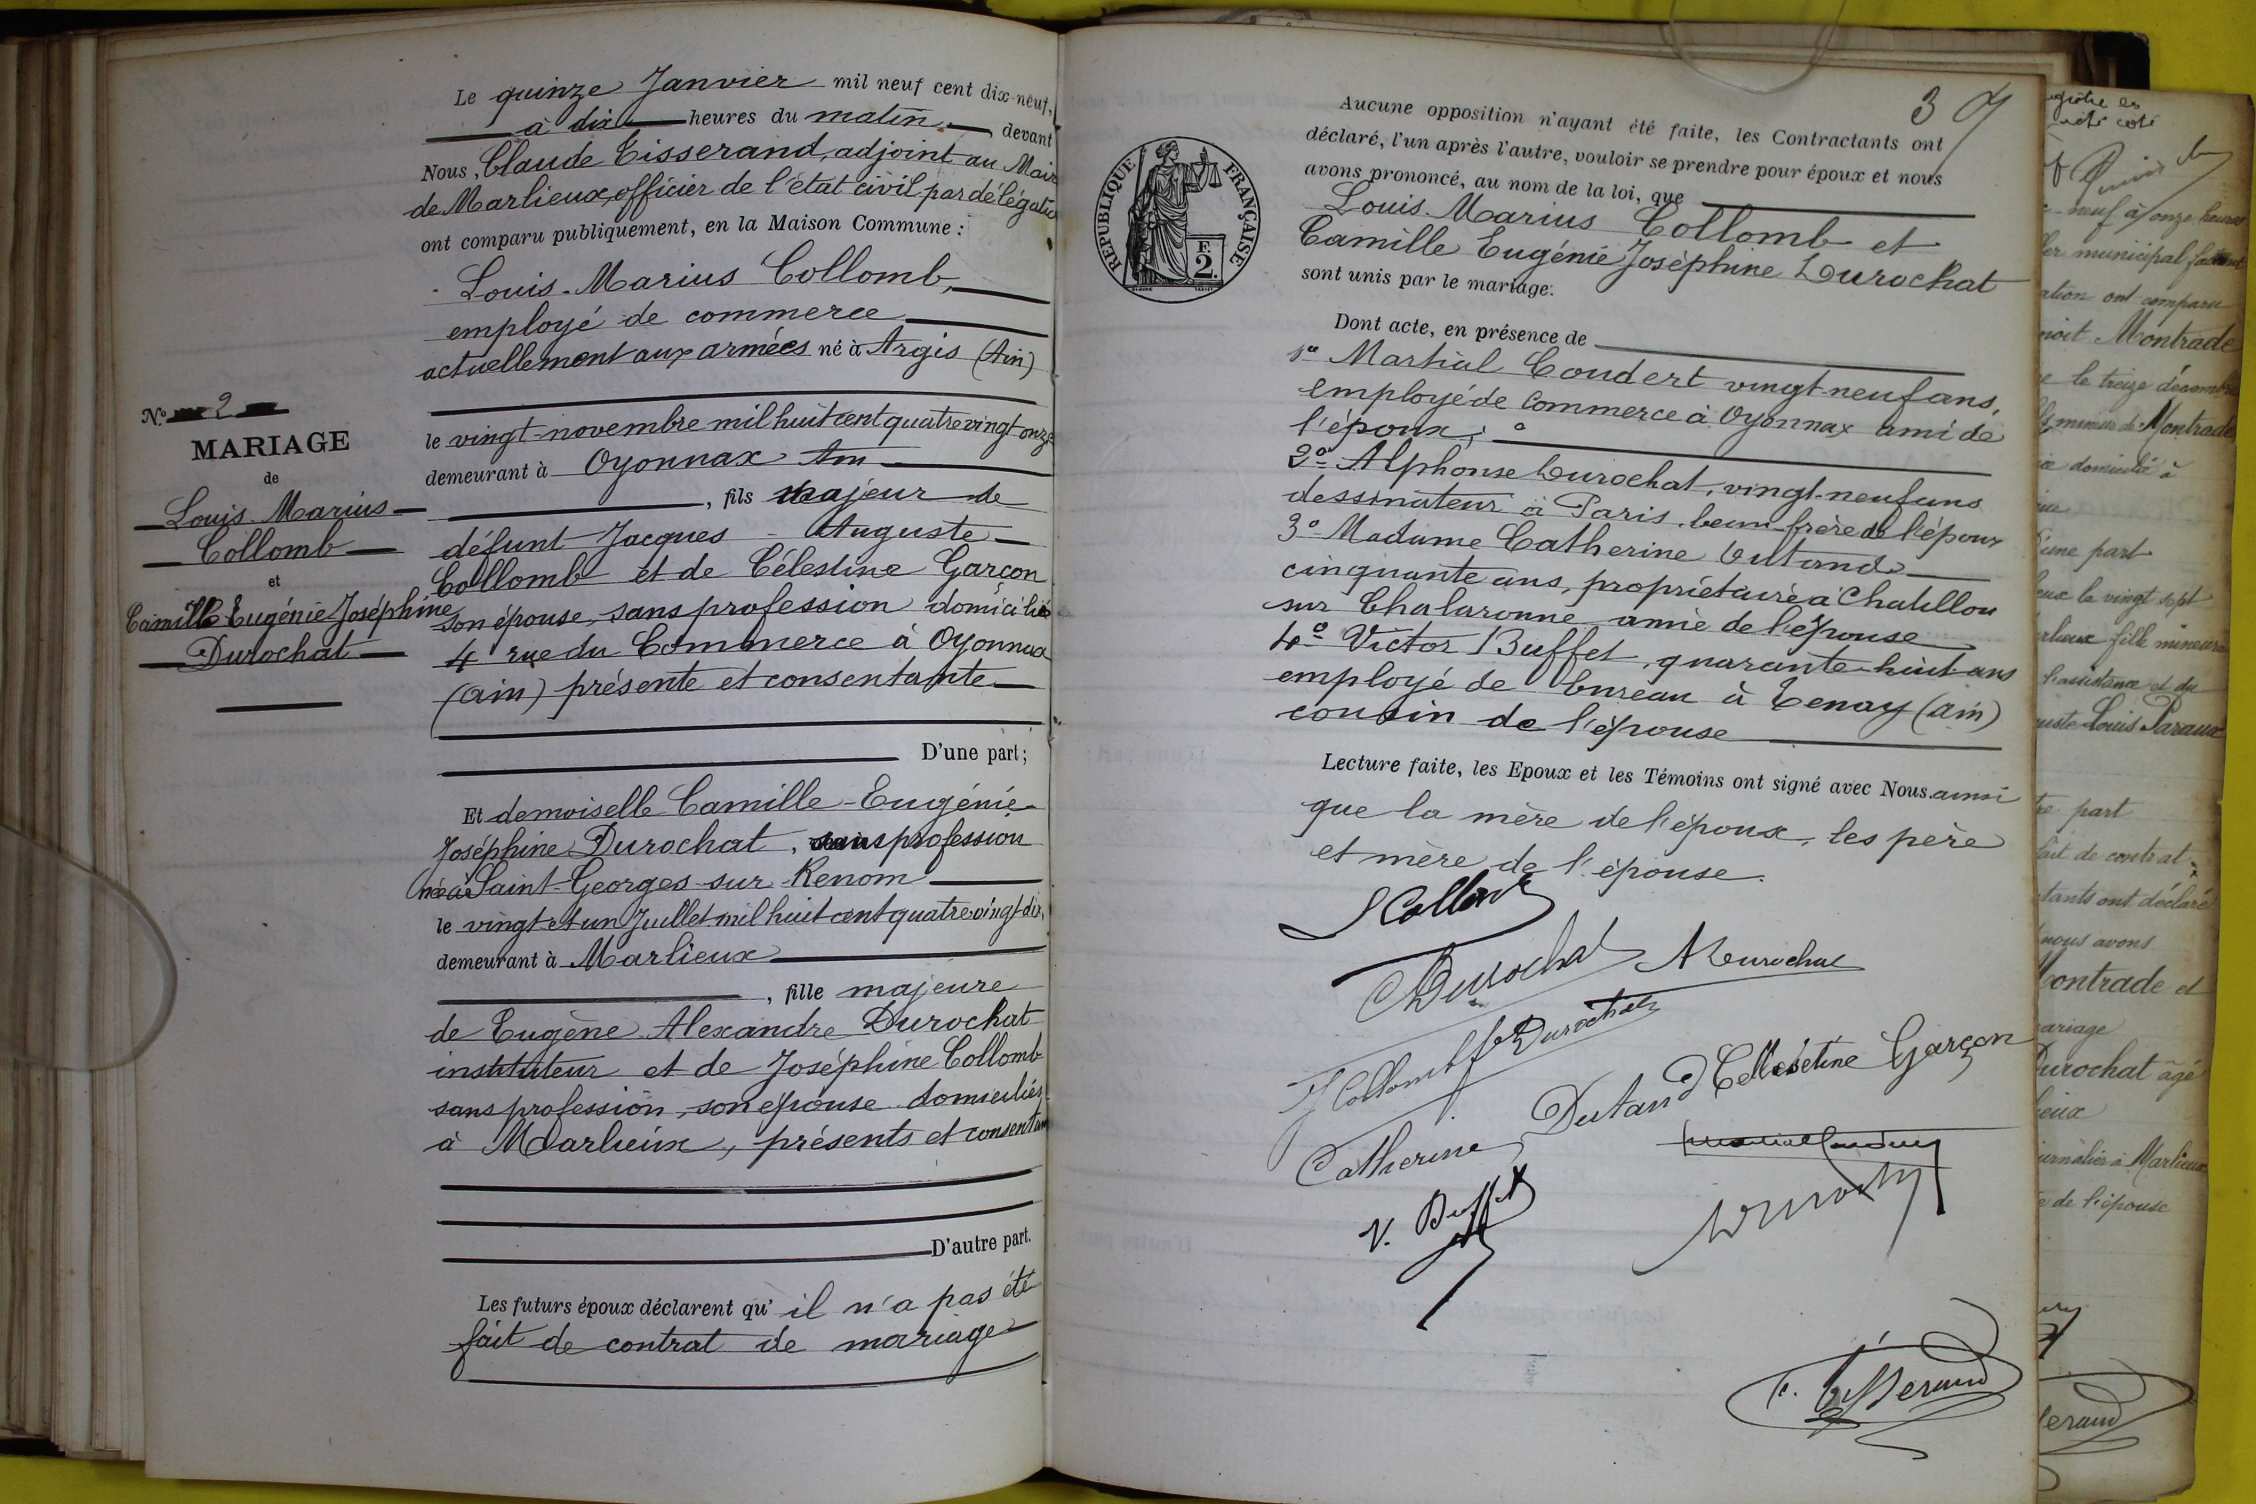 Le quinze Janvier mil neuf cent dix-neuf,
à dix heures du matin, devant
Nous, Claude Tisserand, adjoint au Mair
de Marlieux, officier de l'état civil par délégatio
ont comparu publiquement, en la Maison Commune :
Louis-Marius Collomb,
employé de commerce
actuellement aux armées né à Argis (Ain)
le vingt-novembre mil huit cent quatre vingt onze
demeurant à Oyonnax Ain
, fils majeur de
défunt Jacques - Auguste
Collomb et de Célestine Garçon
son épouse, sans profession domiciliée
4 rue du Commerce à Oyonnax
(ain) présente et consentante
D'une part ;
Et demoiselle Camille-Eugénie
Joséphine Durochat, sans profession
née à Saint-Georges-sur-Renom
le vingt et un Juillet mil huit cent quatre vingt-dix,
demeurant à Marlieux
, fille majeure
de Eugène Alexandre Durochat
instituteur et de Joséphine Collomb
sans profession, son épouse domiciliés
à Marlieux, présents et consentan
D'autre part.
Les futurs époux déclarent qu' il n'a pas été
fait de contrat de mariage
N° 2
MARIAGE
de
Louis Marius
Collomb
et
Camille Eugénie Joséphine
Durochat
3
Aucune opposition n'ayant été faite, les Contractants ont
déclaré, l'un après l'autre, vouloir se prendre pour époux et nous
avons prononcé, au nom de la loi, que
Louis-Marius Collomb et
Camille Eugénie Joséphine Durochat
sont unis par le mariage.
Dont acte, en présence de
1° Martial Coudert vingt-neuf ans,
employé de commerce à Oyonnax ami de
l'époux;
2° Alphonse Durochat, vingt-neuf ans
dessinateur à Paris, beau-frère de l'époux
3° Madame Catherine Dutand
cinquante ans, propriétaire à Chatillon
sur Chalaronne amie de l'épouse
4° Victor Buffet, quarante-huit ans
employé de bureau à Tenay (ain)
cousin de l'épouse
Lecture faite, les Epoux et les Témoins ont signé avec Nous ainsi
que la mère de l'époux, les père
et mère de l'épouse.
L Collomb
C Durochat A Durochat
J Collomb fe Durochat
Catherine Dutand Celléstine Garçon
V. Buffet
Durochat
C. Tisserand
REPUBLIQUE FRANÇAISE
F.
2.
neuf à onze heures
er municipal faisant
ation ont comparu
noit Montrade
le treize décembre
mineur de Montrade
domicilié à
d'une part
eux le vingt sept
rlieux fille mineure
l'assistance et du
uste Louis Paraux
tre part
fait de contrat
tants ont déclaré
nous avons
Montrade et
ariage
Durochat âgé
ieux
urnalier à Marlieux
de l'épouse
serand